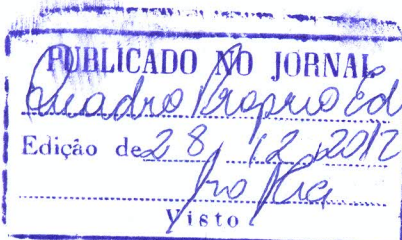 PUBLICADO NO JORNAL
Quadro Proprio Ed
Edição de 28, 12, 2012
Visto